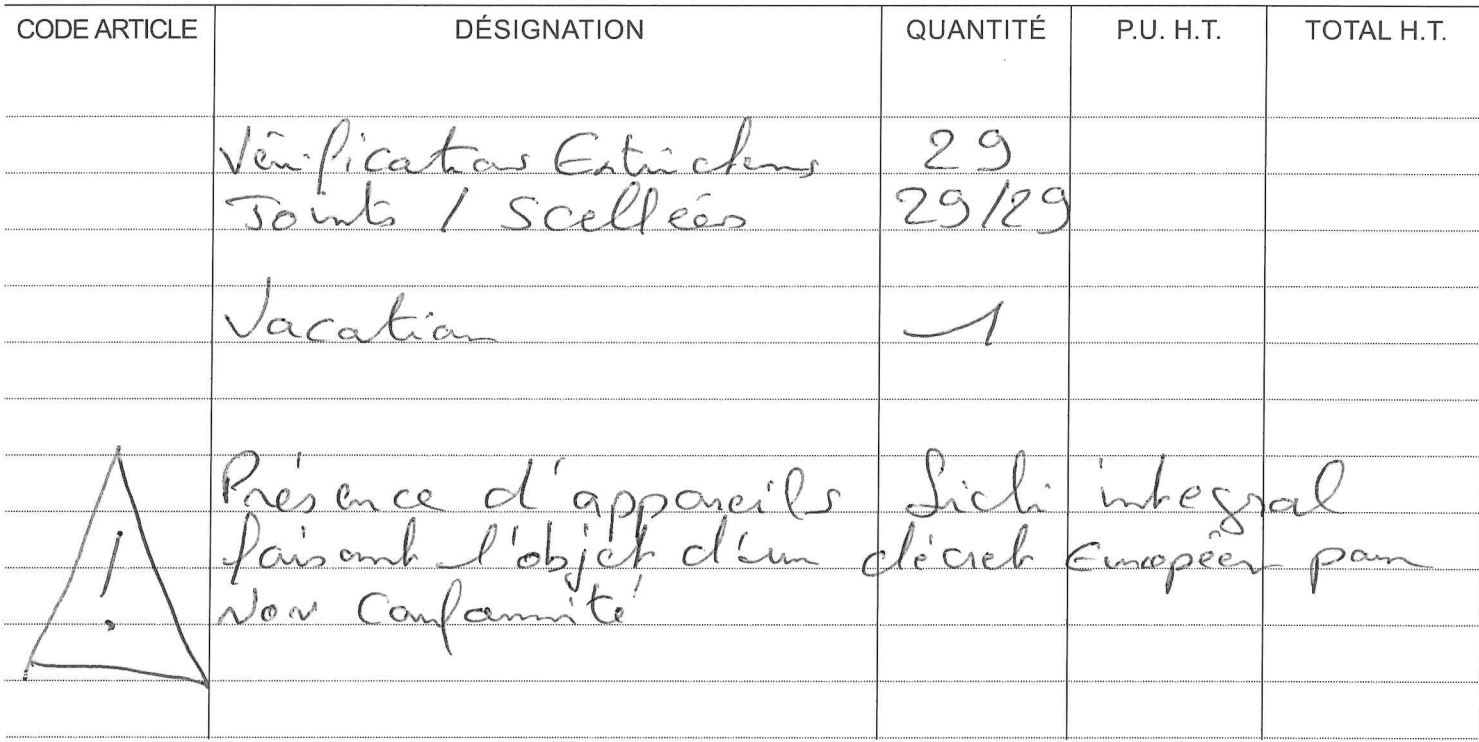 CODE ARTICLE DÉSIGNATION QUANTITÉ P.U. H.T. TOTAL H.T.
Vérifications Extincteurs 29
Joints / Scellées 29/29
Vacation 1
Présence d'appareils Sicli integral
faisant l'objet d'un décret Européen pour
! Non Conformité